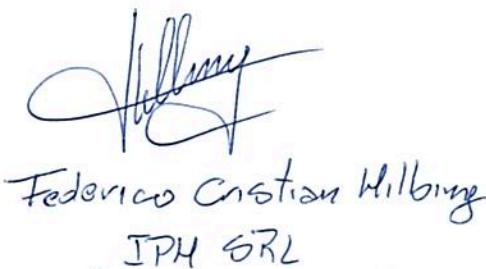 Federico Cristian Hilbing
IPH SRL